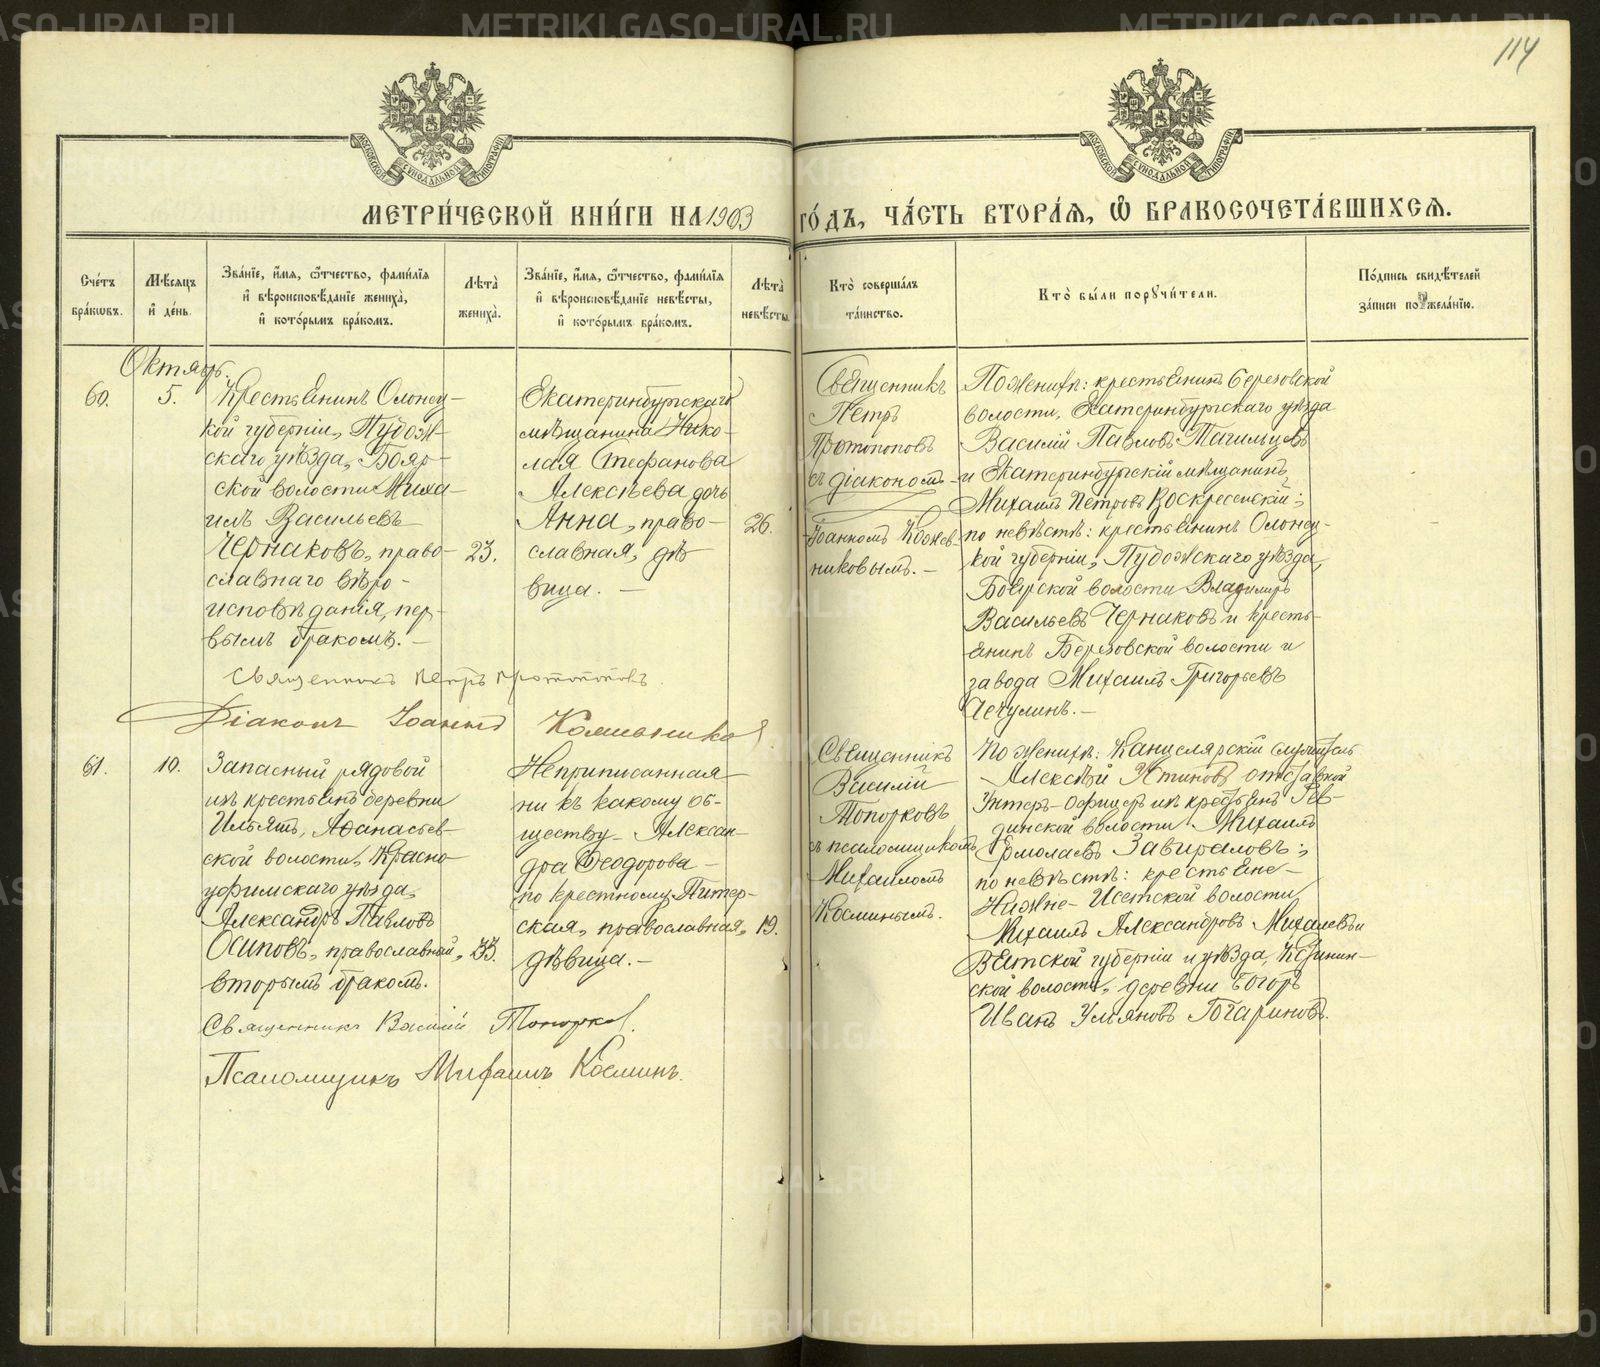 114
МОСКОВСКОЙ СѴНОДАЛЬНОЙ ТИПОГРАФІИ
МОСКОВСКОЙ СѴНОДАЛЬНОЙ ТИПОГРАФІИ
МЕТРИ́ЧЕСКОЙ КНИ́ГИ НА 1903 ГО́ДЪ, ЧА́СТЬ ВТОРА́Я, Ѡ БРАКОСОЧЕТА́ВШИХСЯ.
Сче́тъ бра́кωвъ.
Мѣ́сяцъ и҆ де́нь.
Зва́нїе, и҆́мя, ѻ҆́тчество, фами́лїя и҆ вѣроисповѣ́данїе жениха̀, и҆ кото́рымъ бра́комъ.
Лѣта̀ жениха̀.
Зва́нїе, и҆́мя, ѻ҆́тчество, фами́лїя и҆ вѣроисповѣ́данїе невѣ́сты, и҆ кото́рымъ бра́комъ.
Лѣта̀ невѣ́сты.
Кто̀ соверша́лъ та́инство.
Кто̀ бы́ли порꙋчи́тели.
По́дпись свидѣ́телей за́писи по жела́нїю.
Октябрь.
60.
5.
Крестьянинъ Олонец-
кой губерніи, Пудож-
скаго уѣзда, Бояр-
ской волости Миха-
илъ Васильевъ
Чернаковъ, право-
славнаго вѣро-
исповѣданія, пер-
вымъ бракомъ.-
23.
Екатеринбургскаго
мѣщанина Нико-
лая Стефанова
Алексѣева дочь
Анна, право-
славная, дѣ
вица. -
26.
Священникъ
Петръ
Протопоповъ
съ діакономъ
Іоанномъ
никовымъ. -
По женихѣ: крестьянинъ Березовской
волости, Екатеринбургскаго уѣзда
Василій Павловъ Тагильцевъ
и Екатеринбургскій мѣщанинъ
Михаилъ Петровъ Воскресенскій;
по невѣстѣ: крестьянинъ Олонец-
кой губерніи, Пудожскаго уѣзда,
Боярской волости Владимиръ
Васильевъ Чернаковъ и кресть-
янинъ Березовской волости и
завода Михаилъ Григорьевъ
Чечулинъ. -
Священникъ Петръ Протопоповъ.
Діаконъ Іоаннъ
61.
10.
Запасный рядовой
изъ крестьянъ деревни
Ильятъ, Афанасьев-
ской волости, Красно-
уфимскаго уѣзда,
Александръ Павловъ
Осиповъ, православный,
вторымъ бракомъ.
33.
Неприписанная
ни къ какому об-
ществу Алексан-
дра Ѳеодорова -
по крестному Питер-
ская, православная,
дѣвица. -
19.
Священникъ
Василій
Топорковъ
съ псаломщикомъ
Михаиломъ
Косминымъ.
По женихѣ: Канцелярскій служитель
Алексѣй Устиновъ отставной
Унтеръ-офицеръ изъ крестьянъ Рев-
динской волости Михаилъ
Ермолаевъ Завираловъ;
по невѣстѣ: крестьяне -
Нижне-Исетской волости
Михаилъ Александровъ Михалевъ и
Вятской губерніи и уѣзда,
ской волости, деревни
Иванъ Ульяновъ
Священникъ Василій Топорков.
Псаломщикъ Михаилъ Косминъ.
METRIKI.GASO-URAL.RU